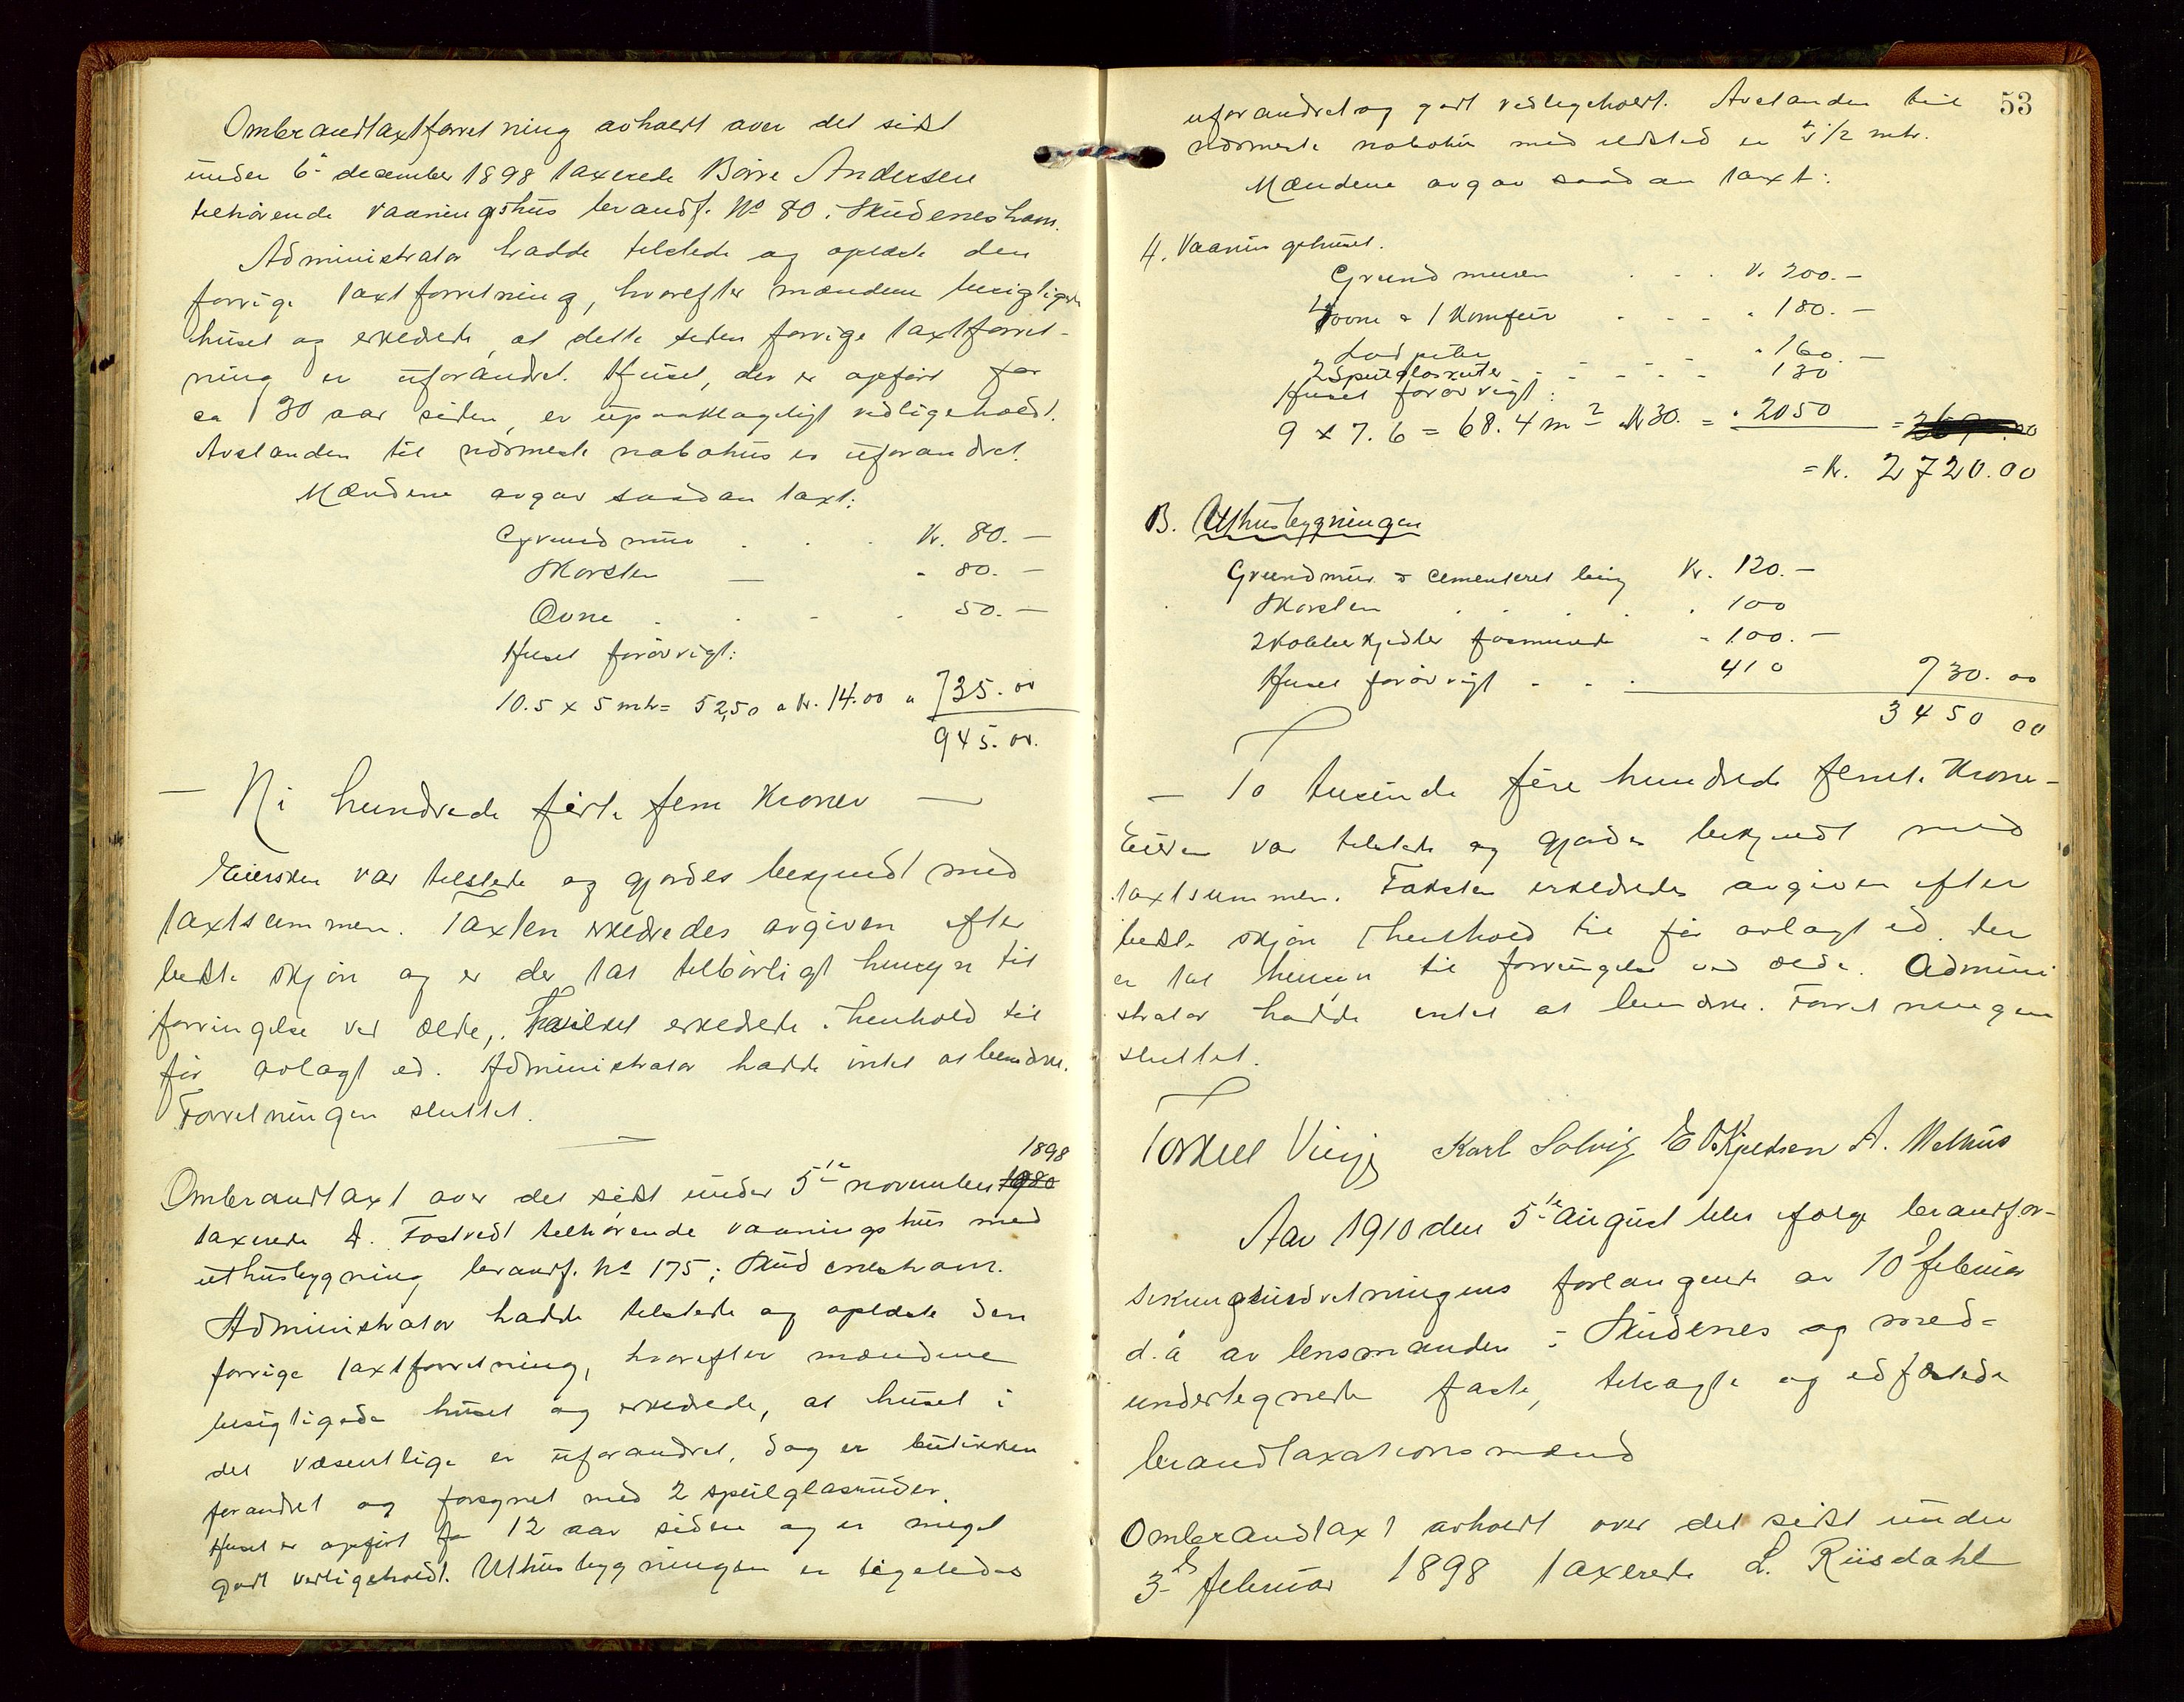 Ombrandtaxtforretning avholdt over det sidst
under 6te december 1898 taxerede Börre Andersen
tilhörende vaaningshus brandf. No 80 i Skudeneshavn.
Administrator hadde tilstede og oplæste den
forrige taxtforretning, hvorefter mændene besigtigede
huset og erklærede, at dette siden forrige taxtforret-
ning er uforandret. Huset, der er opført for
ca 130 aar siden, er upaaklageligt vedligeholdt.
Avstanden til nærmeste nabohus er uforandret.
Mændene avgav saadan taxt:
Grundmur . . . Kr. 80.—
Skorsten — " 80.—
Ovne . . . 50.—
Huset forøvrigt:
10.5 x 5 mtr = 52,50 a Kr. 14.00 " 735.00
945.00.
— Ni hundrede førti fem Kroner —
Eiersken var tilstede og gjordes bekjendt med
taxtsummen. Taxten erklæredes avgiven efter
bedste skjøn og er der tat tilbörligt hensyn til
forringelse ved ælde, hvilket erklærede i henhold til
før avlagt ed. Administrator hadde intet at bemærke.
Forretningen sluttet.
1898
Ombrandtaxt over det sidst under 5te november 1980
taxerede A. Fostvedt tilhørende vaaningshus med
uthusbygning brandf. No 175 i Skudeneshavn.
Administrator hadde tilstede og oplæste den
forrige taxtforretning, hvorefter mændene
besigtigede huset og erklærede, at huset i
det væsentlige er uforandret, dog er butikken
forandret og forsynet med 2 speilglasruder.
Huset er opført for 12 aar siden og er meget
godt vedligeholdt. Uthusbygningen er ligeledes
53
uforandret og godt vedligeholdt. Avstanden til
nærmeste nabohus med ildsted er 1/2 mtr.
Mændene avgav saadan taxt:
A. Vaaningshuset.
Grundmuren . . . Kr. 200.—
4 ovne & 1 Komfur . . . " 180.—
Lodpiber " 160.—
2 Speilglasruter - - - - - 130
Huset forøvrigt:
9 x 7.6 = 68.4 m2 a Kr 30. = " 2050 =
= Kr. 2720.00
B. Uthusbygningen
Grundmur & cementeret bing Kr. 120.—
Skorsten . . . . . 100
2 Kobberkjedler fasmurede - 100.—
Huset forøvrigt - - . 410 730.00
3450 00
— To tusinde fire hundrede femti Kroner -
Eieren var tilstede og gjordes bekjendt med
taxtsummen. Taksten erklæredes avgiven efter
bedste skjøn i henhold til før avlagt ed. Der
er tat hensyn til forringelse ved ælde. Admini
strator hadde intet at bemærke. Forretningen
sluttet.
Torkell Karl Solvig E V Kjeldsen A. Melhus
Aar 1910 den 5te august blev ifølge brandfor-
sikringsindretningens forlangende av 10 februar
d.å av lensmanden i Skudenes og med-
undertegnede faste, tilkaldte og edfæstede
brandtaxationsmænd
Ombrandtaxt avholdt over det sidst under
3die februar 1898 taxerede L. Riisdahl